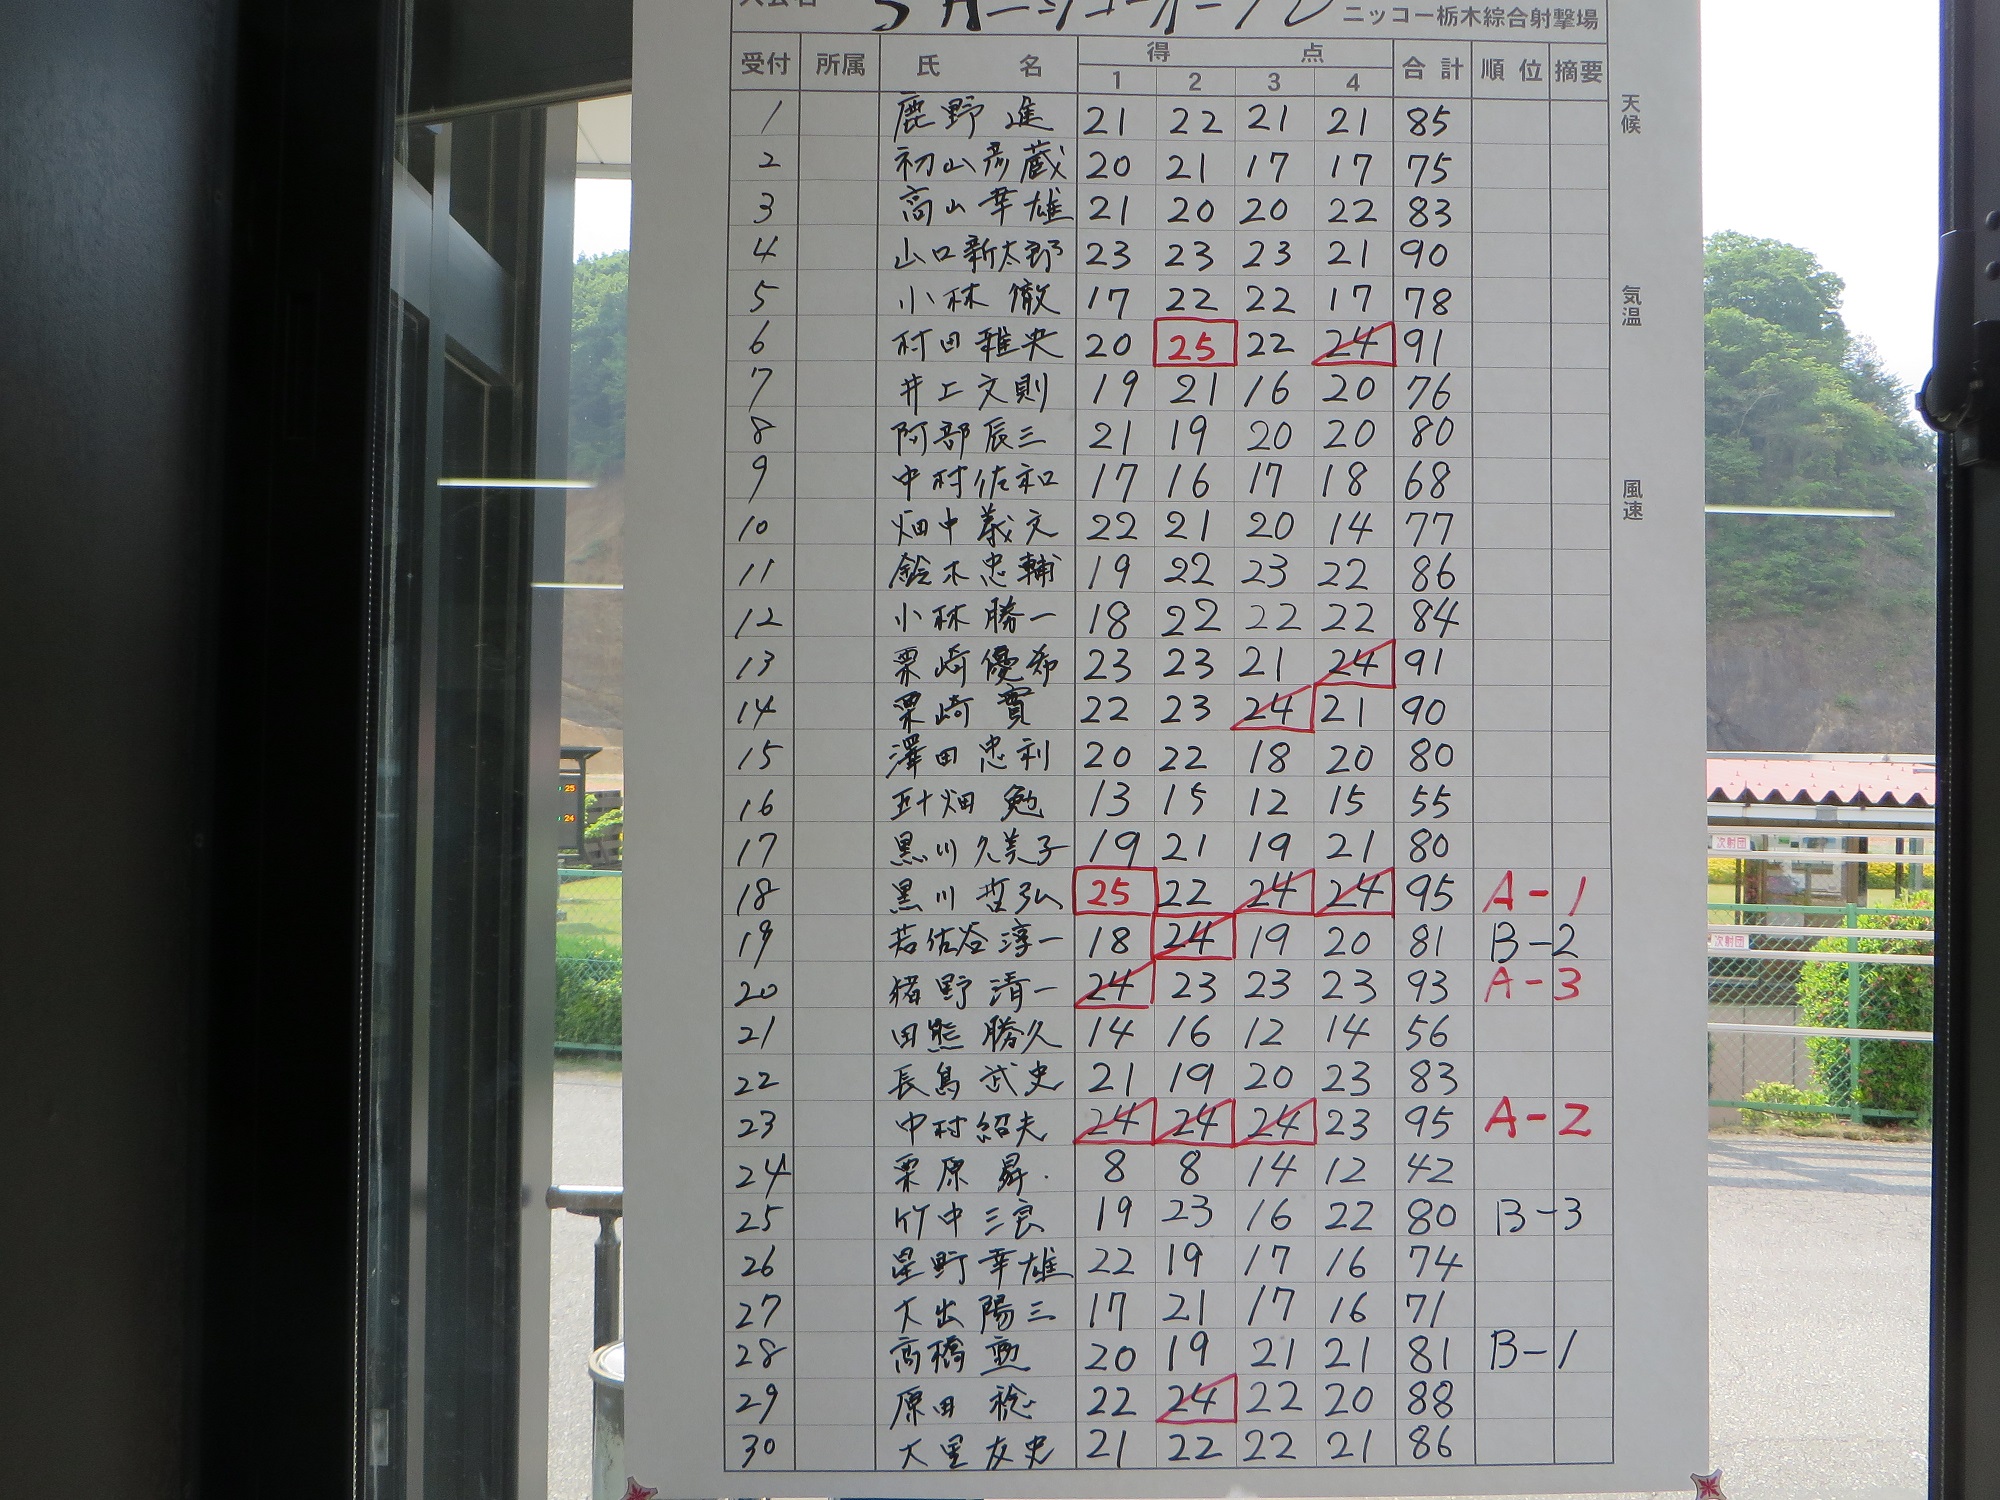 ニッコー栃木綜合射撃場
受付 所属 氏名 得点 合計 順位 摘要
1 2 3 4
天候
気温
風速
1 鹿野 進 21 22 21 21 85
2 初山彦蔵 20 21 17 17 75
3 高山幸雄 21 20 20 22 83
4 山口新太郎 23 23 23 21 90
5 小林 徹 17 22 22 17 78
6 村田雅央 20 25 22 24 91
7 井上文則 19 21 16 20 76
8 阿部辰三 21 19 20 20 80
9 中村佐和 17 16 17 18 68
10 畑中義文 22 21 20 14 77
11 鈴木忠輔 19 22 23 22 86
12 小林勝一 18 22 22 22 84
13 栗崎優希 23 23 21 24 91
14 栗崎 實 22 23 24 21 90
15 澤田忠利 20 22 18 20 80
16 五十畑 勉 13 15 12 15 55
17 黒川久美子 19 21 19 21 80
18 黒川哲弘 25 22 24 24 95 A-1
19 若佐谷淳一 18 24 19 20 81 B-2
20 猪野清一 24 23 23 23 93 A-3
21 田熊勝久 14 16 12 14 56
22 長島武史 21 19 20 23 83
23 中村紹夫 24 24 24 23 95 A-2
24 栗原 昇 8 8 14 12 42
25 竹中三 19 23 16 22 80 B-3
26 星野幸雄 22 19 17 16 74
27 大出陽三 17 21 17 16 71
28 高橋 20 19 21 21 81 B-1
29 原田 稔 22 24 22 20 88
30 大里友史 21 22 22 21 86
次射団
次射団
25
24